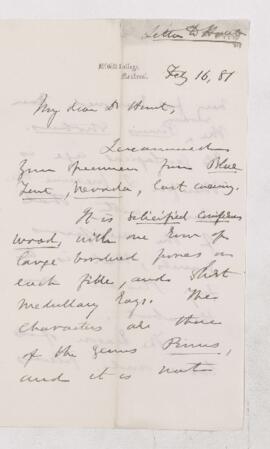 Letter Dr Hunt
McGill College,
Montreal.
Feby 16, 81
My dear Dr Hunt,
I examined
your specimen from Blue
Tent, Nevada, last evening.
It is silicified coniferous
wood, with one row of
large bordered pores on
each fibre, and short
medullary rays. The
characters are those
of the genus Pinus,
and it is not